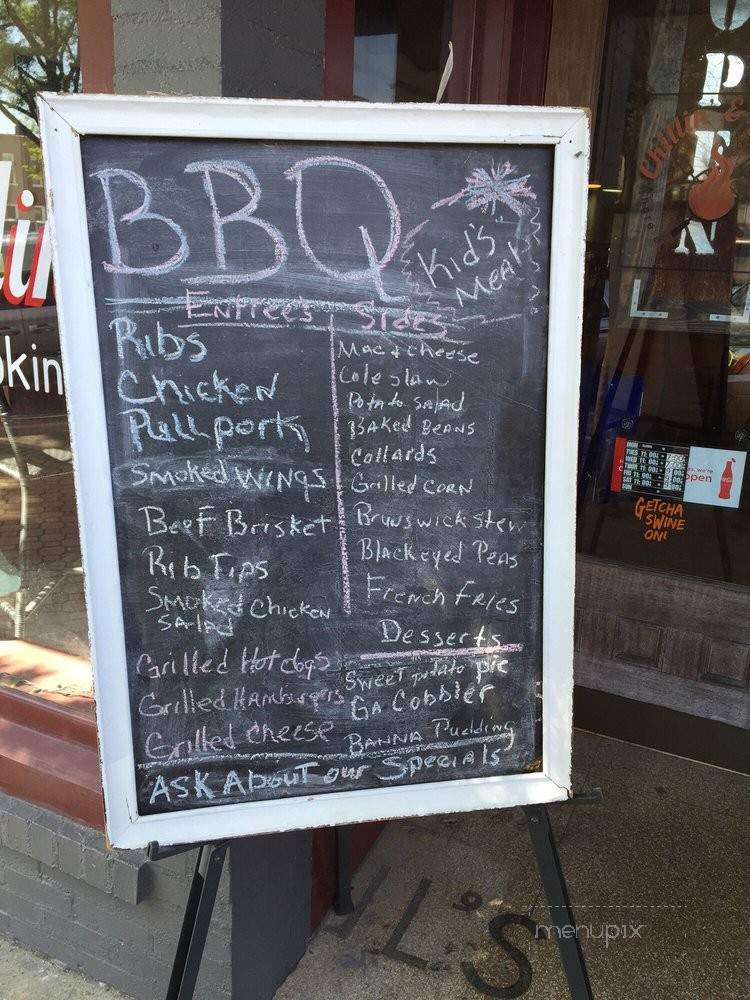 BBQ
Kid's
Meal
Entree's
Ribs
Chicken
Pull pork
Smoked Wings
Beef Brisket
Rib Tips
Smoked Chicken
Salad
Grilled Hotdogs
Grilled Hamburgers
Grilled Cheese
Sides
Mac & cheese
Cole slaw
Potato Salad
Baked Beans
Collards
Grilled Corn
Brunswick Stew
Blackeyed Peas
French Fries
Desserts
Sweet potato pie
GA Cobbler
Banna Pudding
ASK About our Specials
OPEN
Chillin &
open
GETCHA
SWINE
ON!
L'S
menupix